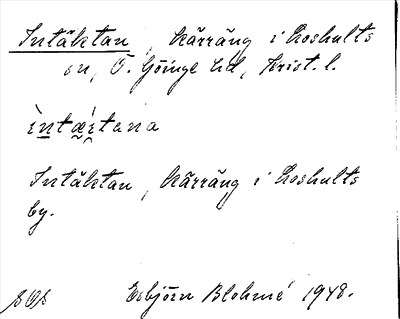 Intäktan, kärräng i Loshults
sn, Ö. Göinge hd, Krist. l.
ìntæ̀itana
Intäktan, kärräng i Loshults
by.
Esbjörn Blohmé 1948.